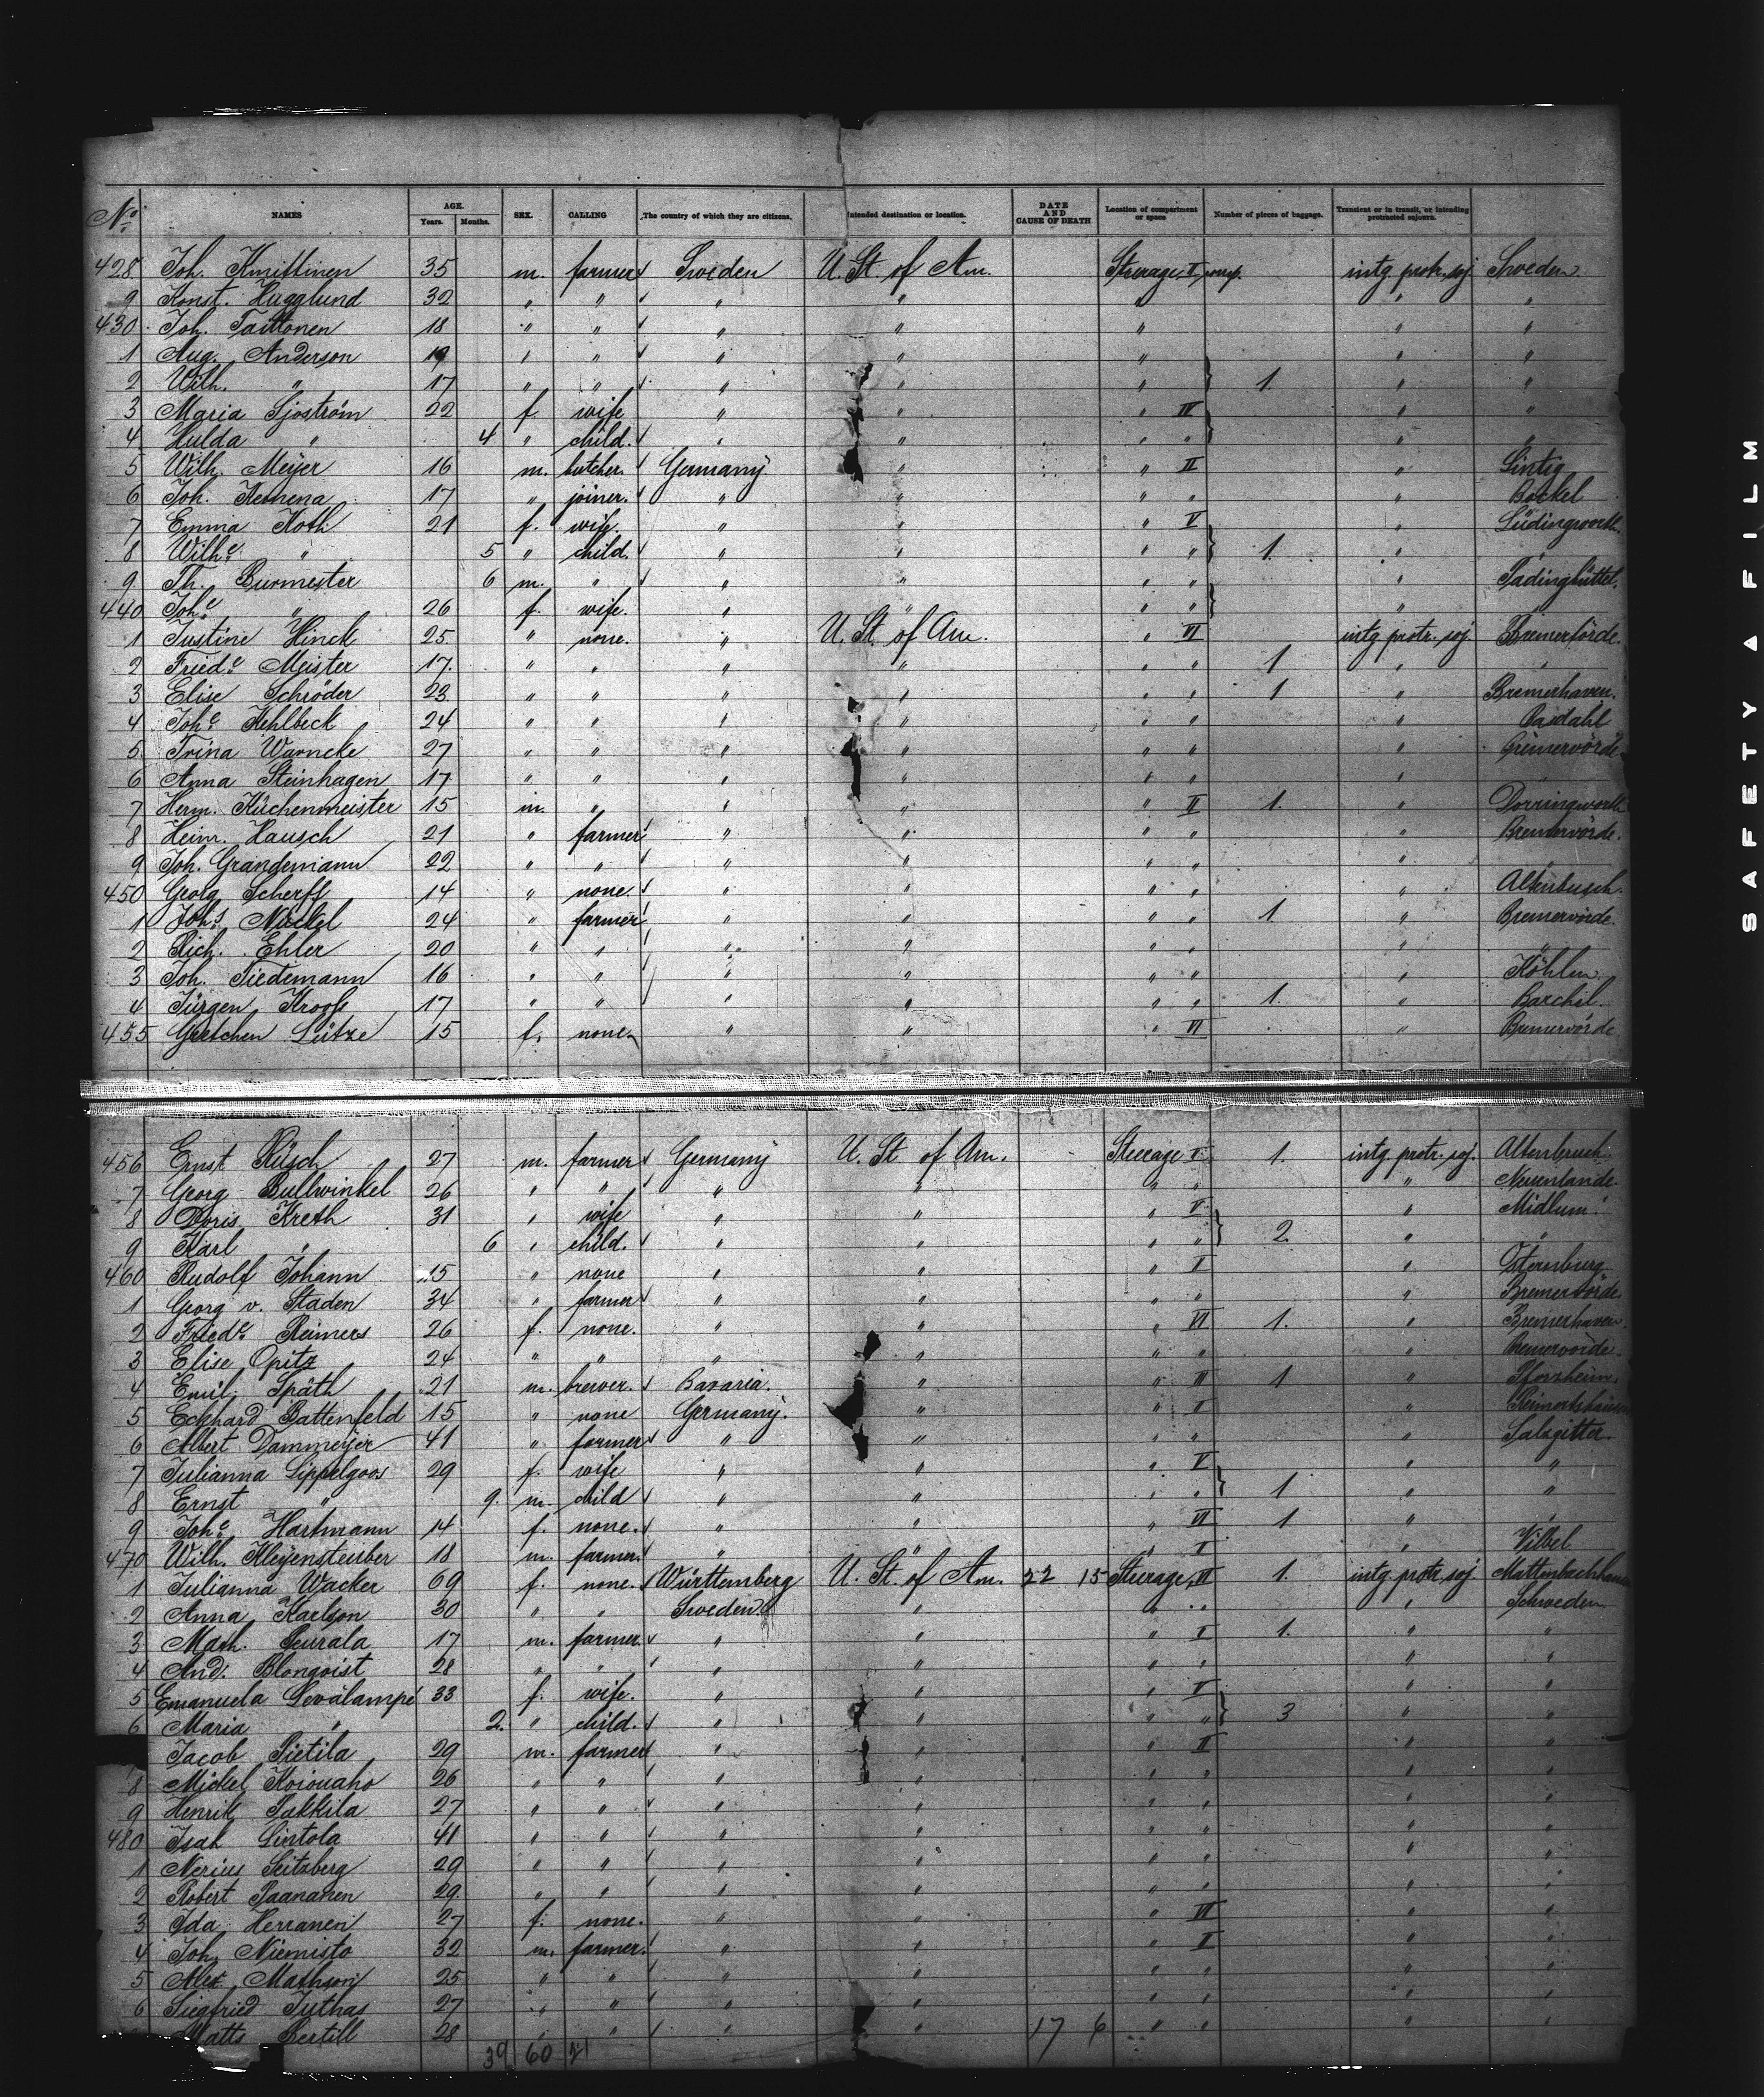 No. NAMES AGE. Years. Months. SEX. CALLING The country of which they are citizens. Intended destination or location. DATE AND CAUSE OF DEATH Location of compartment or space Number of pieces of baggage. Transient or in transit, or intending protracted sojourn.
428 Joh. Knittinen 35 m. farmer Sweden U. St. of Am. Steerage, II comp. intg. protr. soj Sweden
9 Konst. Hugglund 32 " " " " " " "
430 Joh. Taittonen 18 " " " " " " "
1 Aug. Anderson 19 " " " " " " "
2 Wilh. " 17 " " " " " 1. " "
3 Maria Sjöström 22 f. wife " " " IV " "
4 Hulda " 4 " child. " " " " " "
5 Wilh. Meyer 16 m. butcher. Germany " " II " Sintig
6 Joh. Kemena 17 " joiner. " " " " " Bockel
7 Emma Koth 21 f. wife. " " " V " Lüdingworth
8 Wilh.e " 5 " child. " " " " 1. "
9 Th. Burmester 6 m. " " " " " " Padingbüttel.
440 Joh.e " 26 f. wife. " " " " "
1 Justine Hinck 25 " none. " U. St. of Am. " VI intg. protr. soj. Bremerförde.
2 Fried.e Meister 17. " " " " " " 1 " "
3 Elise Schröder 23 " " " " " " 1 " Bremerhaven.
4 Joh.e Kehlbeck 24 " " " " " " "
5 Trina Warncke 27 " " " " " " "
6 Anna Steinhagen 17 " " " " " " "
7 Herm. Küchenmeister 15 m. " " " " II 1. " Dorringworth
8 Heinr. Hausch 21 " farmer " " " " " Bremervörde.
9 Joh. Grandemann 22 " " " " " " " "
450 Georg Scherff 14 " none. " " " " " Altenbusch.
1 Joh.s Nückel 24 " farmer " " " " 1. " Bremervörde.
2 Rich. Ehler 20 " " " " " " " "
3 Joh. Tiedemann 16 " " " " " " " Köhlen
4 Jürgen Kroofs 17 " " " " " " 1. " Barchel.
455 Gretchen Lütze 15 f. none. " " " VI " Bremervörde
456 Ernst Rüsch 27 m. farmer Germany U. St. of Am. Steerage I 1. intg. protr. soj. Altenbruch.
7 Georg Bullwinkel 26 " " " " " " " Neuenlande.
8 Doris Kreth 31 " wife " " " V " Midlum.
9 Karl " 6 " child. " " " " 2. " "
460 Rudolf Johann 15 " none " " " I " Osternburg
1 Georg v. Staden 34 " farmer " " " " " Bremervörde
2 Fried.e Reimers 26 f. none. " " " VI 1. " Bremerhaven.
3 Elise Opitz 24 " " " " " " " Bremervörde.
4 Emil Späth 21 m. brewer. Bavaria. " " II 1 " Pforzheim.
5 Eckhard Battenfeld 15 " none Germany. " " I "
6 Albert Dammeyer 41 " farmer " " " " " Salzgitter.
7 Julianna Lippelgoos 29 f. wife " " " V " "
8 Ernst " 9. m. child " " " " 1 " "
9 Joh.e Hartmann 14 f. none. " " " VI 1 " "
470 Wilh. Kleyensteuber 18 m. farmer. " " " I " Vilbel
1 Julianna Wacker 69 f. none. Württemberg U. St. of Am. 22 15 Steerage, VI 1. intg. protr. soj
2 Anna Karlson 30 " " Sweden. " " " " Schweden
3 Math. Peurala 17 m. farmer. " " " I 1. " "
4 And. Blonqvist 28 " " " " " " " "
5 Emanuela Levälampé 33 f. wife. " " " V " "
6 Maria " 2. " child. " " " " 3 " "
Jacob Pietila 29 m. farmer " " " II " "
8 Mickel Koiouaho 26 " " " " " " " "
9 Henrik Pakkila 27 " " " " " " " "
480 Isak Lintola 41 " " " " " " " "
1 Nerius Seitzberg 29 " " " " " " " "
2 Robert Paananen 29. " " " " " " " "
3 Ida Herranen 27 f. none. " " " VI " "
4 Joh. Niemisto 32 m. farmer. " " " I " "
5 Alex. Mathson 25 " " " " " " " "
6 Siegfried Juthas 27 " " " " " " " "
Matts Bertill 28 " " " " 17 6 " " " "
39 60 21
SAFETY A FILM